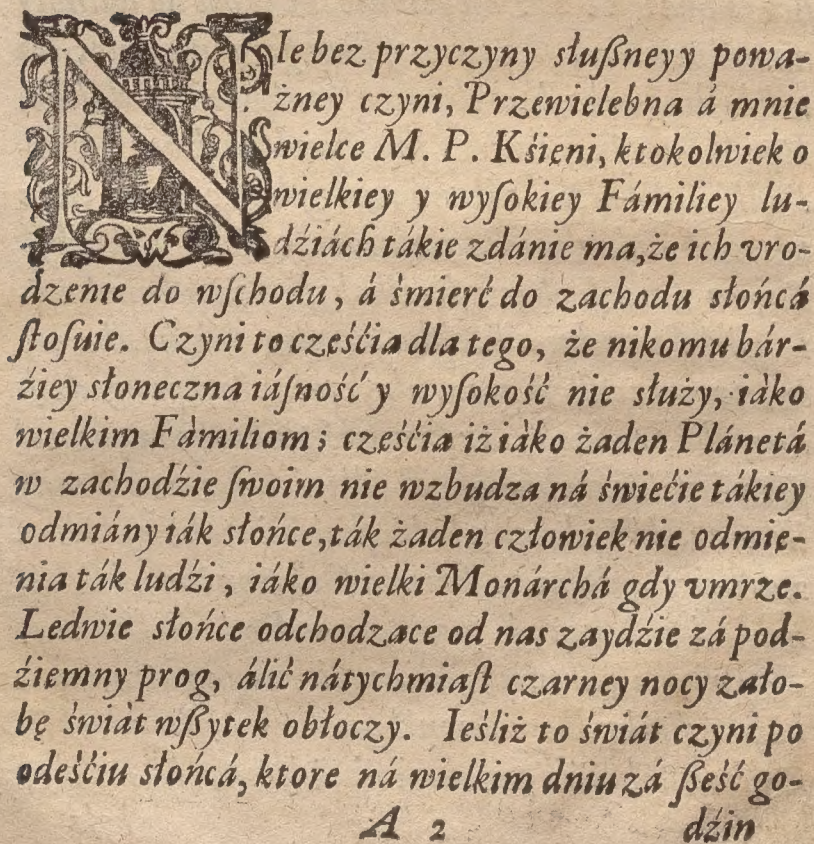 NIe bez przyczyny słußneyy powa-
żney czyni, Przewielebna á mnie
wielce M. P. Kśieni, ktokolwiek o
wielkiey y wyſokiey Fámiliey lu-
dźiách tákie zdánie ma, że ich vro-
dzenie do wſchodu, á śmierć do zachodu słońcá
ſtoſuie. Czyni to cześćia dla tego, że nikomu bár-
źiey słoneczna iáſność y wyſokość nie służy, iàko
wielkim Fàmiliom; cześćia iż iàko żaden Plánetá
w zachodźie ſwoim nie wzbudza ná świećie tákiey
odmiány iák słońce, ták żaden człowiek nie odmie-
nia ták ludźi, iáko wielki Monárchá gdy vmrze.
Ledwie słońce odchodzace od nas zaydźie zá pod-
źiemny prog, álić nátychmiaſt czarney nocy zało-
bę świàt wßytek obłoczy. Ieśliż to świát czyni po
odeśćiu słońcá, ktore ná wielkim dniu zá ßeść go-
A 2 dźin